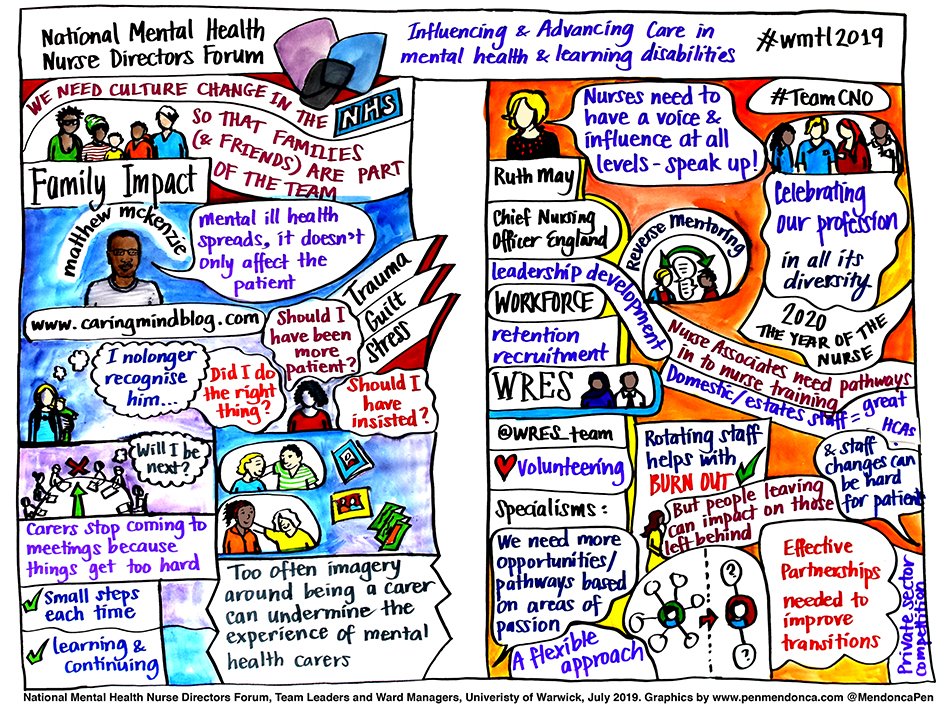 National Mental Health
Nurse Directors Forum
Influencing & Advancing Care in
mental health & learning disabilities
#wmtl2019
WE NEED CULTURE CHANGE IN THE
NHS
SO THAT FAMILIES
(& FRIENDS) ARE PART
OF THE TEAM
Family Impact
matthew mckenzie
Mental ill health
spreads, it doesn't
only affect the
patient
www.caringmindblog.com
Trauma
Guilt
Stress
Should I
have been
more
patient?
I nolonger
recognise
him...
Did I do
the right
thing?
Should I
have
insisted?
Will I be
next?
Carers stop coming to
meetings because
things get too hard
Small steps
each time
learning &
continuing
Too often imagery
around being a carer
can undermine the
experience of mental
health carers
Nurses need to
have a voice &
influence at all
levels - speak up!
#TeamCNO
Ruth May
Chief Nursing
Officer England
Reverse Mentoring
Celebrating
our profession
in all its
diversity
2020
THE YEAR OF THE
NURSE
leadership development
WORKFORCE
retention
recruitment
Nurse Associates need pathways
in to nurse training
Domestic/estates staff = great
HCAs
WRES
@WRES_team
Volunteering
Rotating staff
helps with
BURN OUT
& staff
changes can
be hard
for patients
But people leaving
can impact on those
left behind
Specialisms:
We need more
opportunities/
pathways based
on areas of
passion
A flexible
approach
?
?
Effective
Partnerships
needed to
improve
transitions
Private sector
competition
National Mental Health Nurse Directors Forum, Team Leaders and Ward Managers, Univeristy of Warwick, July 2019. Graphics by www.penmendonca.com @MendoncaPen